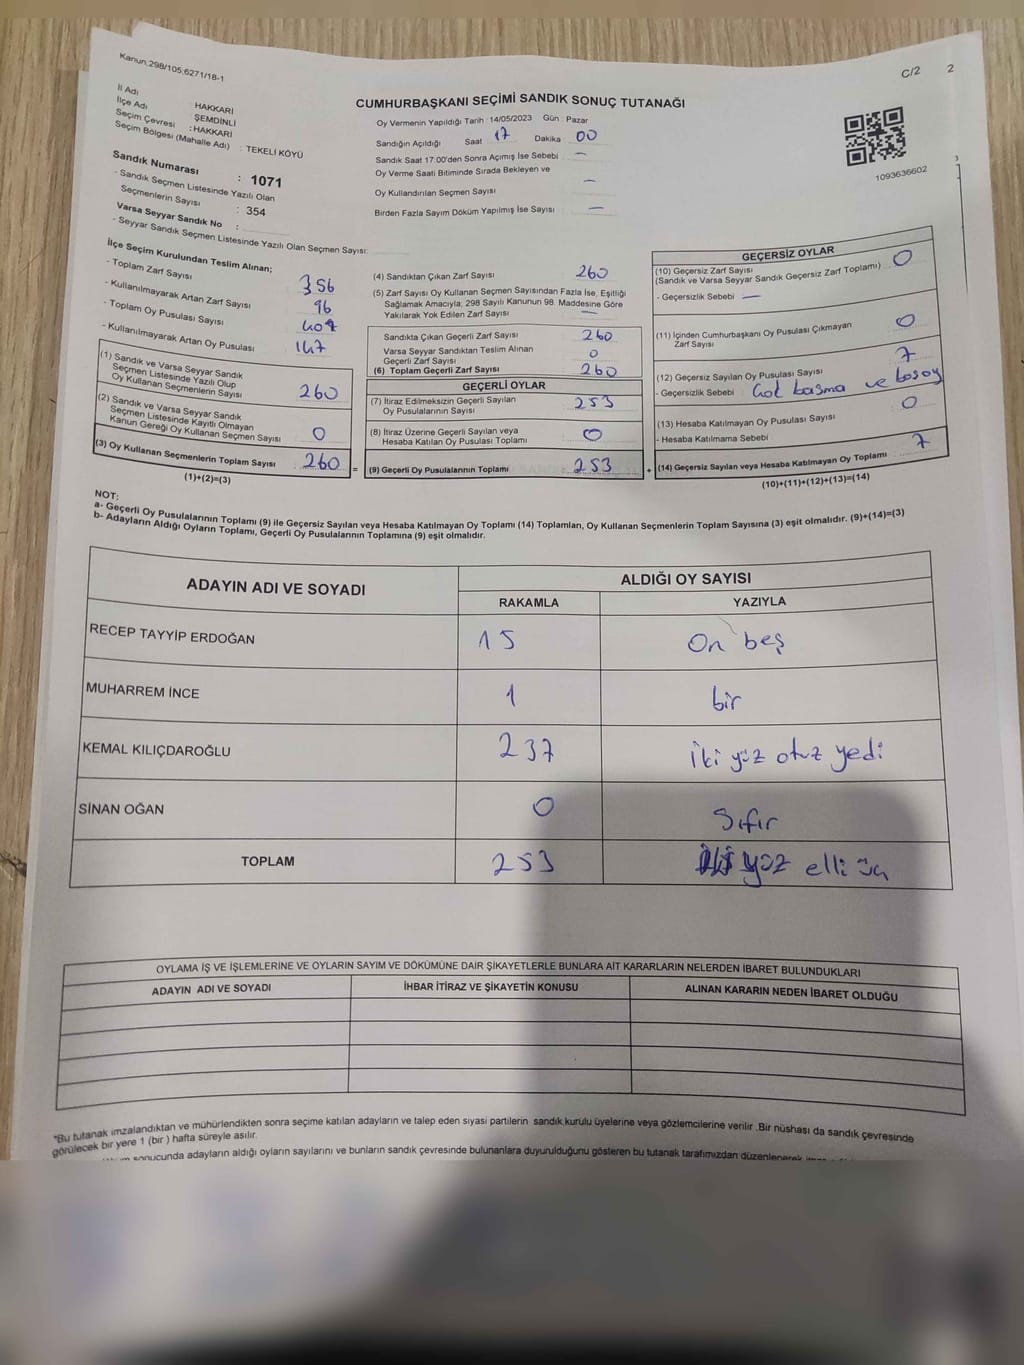 Kanun:298/105;6271/18-1
C/2 2
İl Adı HAKKARİ
İlçe Adı ŞEMDİNLİ
Seçim Çevresi : HAKKARİ
Seçim Bölgesi (Mahalle Adı) : TEKELİ KÖYÜ
Sandık Numarası : 1071
- Sandık Seçmen Listesinde Yazılı Olan
Seçmenlerin Sayısı : 354
Varsa Seyyar Sandık No :
- Seyyar Sandık Seçmen Listesinde Yazılı Olan Seçmen Sayısı:
CUMHURBAŞKANI SEÇİMİ SANDIK SONUÇ TUTANAĞI
Oy Vermenin Yapıldığı Tarih : 14/05/2023 Gün : Pazar
Sandığın Açıldığı Saat 17 Dakika 00
Sandık Saat 17:00'den Sonra Açımış İse Sebebi —
Oy Verme Saati Bitiminde Sırada Bekleyen ve
Oy Kullandırılan Seçmen Sayısı —
Birden Fazla Sayım Döküm Yapılmış İse Sayısı —
1093636602
İlçe Seçim Kurulundan Teslim Alınan;
- Toplam Zarf Sayısı 356
- Kullanılmayarak Artan Zarf Sayısı 96
- Toplam Oy Pusulası Sayısı 407
- Kullanılmayarak Artan Oy Pusulası 147
(1) Sandık ve Varsa Seyyar Sandık
Seçmen Listesinde Yazılı Olup
Oy Kullanan Seçmenlerin Sayısı 260
(2) Sandık ve Varsa Seyyar Sandık
Seçmen Listesinde Kayıtlı Olmayan
Kanun Gereği Oy Kullanan Seçmen Sayısı 0
(3) Oy Kullanan Seçmenlerin Toplam Sayısı 260 =
(1)+(2)=(3)
(4) Sandıktan Çıkan Zarf Sayısı 260
(5) Zarf Sayısı Oy Kullanan Seçmen Sayısından Fazla İse, Eşitliği
Sağlamak Amacıyla, 298 Sayılı Kanunun 98. Maddesine Göre
Yakılarak Yok Edilen Zarf Sayısı —
Sandıkta Çıkan Geçerli Zarf Sayısı 260
Varsa Seyyar Sandıktan Teslim Alınan
Geçerli Zarf Sayısı 0
(6) Toplam Geçerli Zarf Sayısı 260
GEÇERLİ OYLAR
(7) İtiraz Edilmeksizin Geçerli Sayılan
Oy Pusulalarının Sayısı 253
(8) İtiraz Üzerine Geçerli Sayılan veya
Hesaba Katılan Oy Pusulası Toplamı 0
(9) Geçerli Oy Pusulalarının Toplamı : 253 +
GEÇERSİZ OYLAR
(10) Geçersiz Zarf Sayısı
(Sandık ve Varsa Seyyar Sandık Geçersiz Zarf Toplamı) 0
- Geçersizlik Sebebi —
(11) İçinden Cumhurbaşkanı Oy Pusulası Çıkmayan
Zarf Sayısı 0
(12) Geçersiz Sayılan Oy Pusulası Sayısı 7
- Geçersizlik Sebebi : basma ve
(13) Hesaba Katılmayan Oy Pusulası Sayısı 0
- Hesaba Katılmama Sebebi
(14) Geçersiz Sayılan veya Hesaba Katılmayan Oy Toplamı 7
(10)+(11)+(12)+(13)=(14)
NOT:
a- Geçerli Oy Pusulalarının Toplamı (9) ile Geçersiz Sayılan veya Hesaba Katılmayan Oy Toplamı (14) Toplamları, Oy Kullanan Seçmenlerin Toplam Sayısına (3) eşit olmalıdır. (9)+(14)=(3)
b- Adayların Aldığı Oyların Toplamı, Geçerli Oy Pusulalarının Toplamına (9) eşit olmalıdır.
ADAYIN ADI VE SOYADI ALDIĞI OY SAYISI
RAKAMLA YAZIYLA
RECEP TAYYİP ERDOĞAN 15 On beş
MUHARREM İNCE 1 bir
KEMAL KILIÇDAROĞLU 237 iki yüz otuz yedi
SİNAN OĞAN 0 Sıfır
TOPLAM 253 iki yüz elli üç
OYLAMA İŞ VE İŞLEMLERİNE VE OYLARIN SAYIM VE DÖKÜMÜNE DAİR ŞİKAYETLERLE BUNLARA AİT KARARLARIN NELERDEN İBARET BULUNDUKLARI
ADAYIN ADI VE SOYADI İHBAR İTİRAZ VE ŞİKAYETİN KONUSU ALINAN KARARIN NEDEN İBARET OLDUĞU
*Bu tutanak imzalandıktan ve mühürlendikten sonra seçime katılan adayların ve talep eden siyasi partilerin sandık kurulu üyelerine veya gözlemcilerine verilir .Bir nüshası da sandık çevresinde
görülecek bir yere 1 (bir ) hafta süreyle asılır.
sonucunda adayların aldığı oyların sayılarını ve bunların sandık çevresinde bulunanlara duyurulduğunu gösteren bu tutanak tarafımızdan düzenlenerek